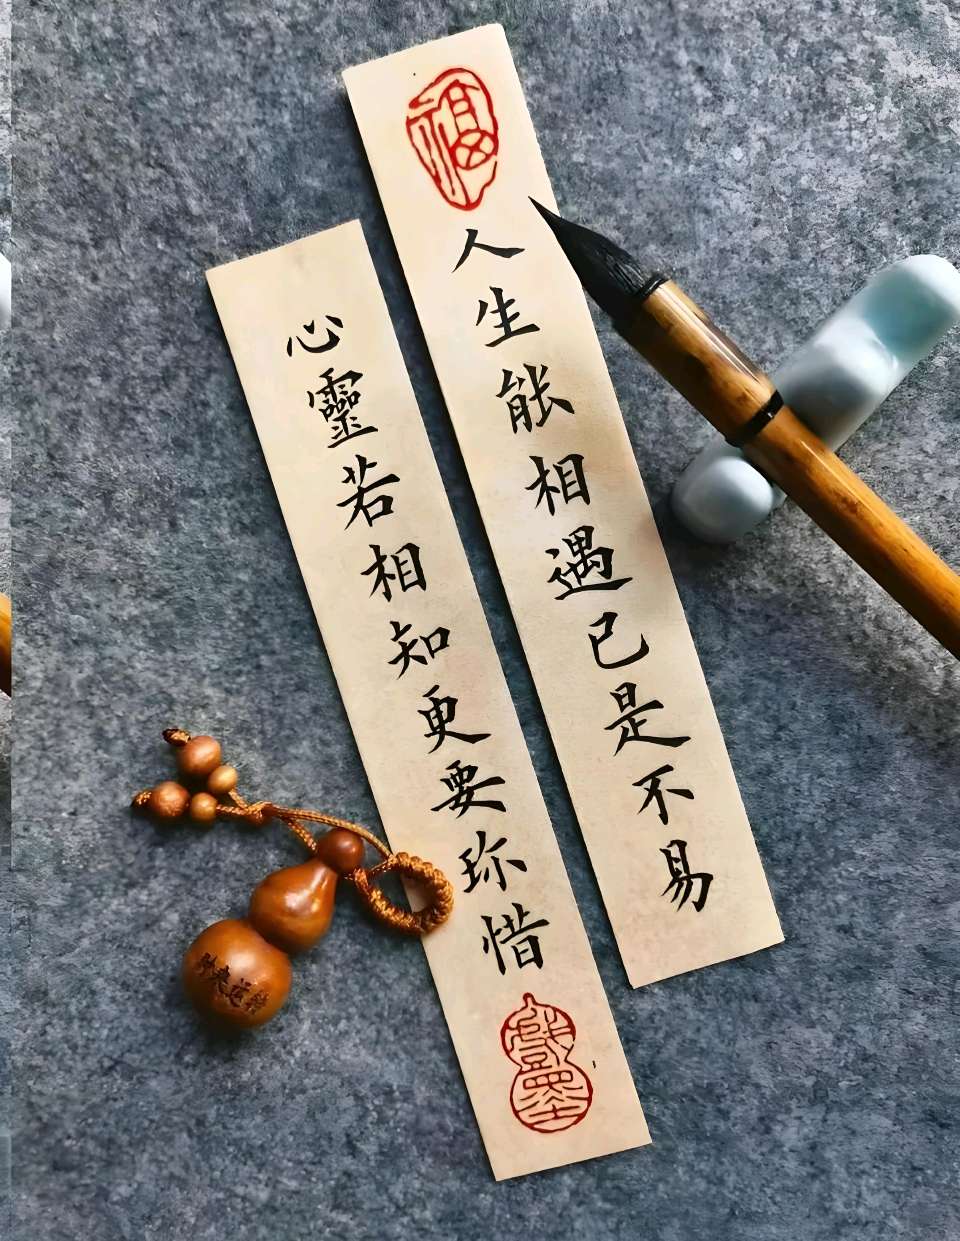 福
人生能相遇已是不易
心靈若相知更要珎惜